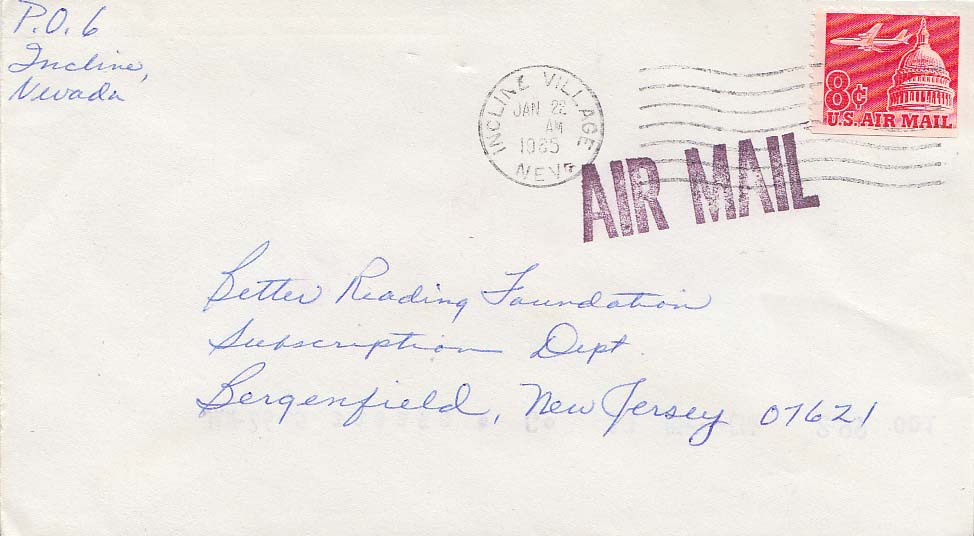 P.O. 6
Incline,
Nevada
INCLINE VILLAGE
JAN 22
AM
1965
NEV
8¢
U.S. AIR MAIL
AIR MAIL
Better Reading Foundation
Subscription Dept.
Bergenfield, New Jersey 07621